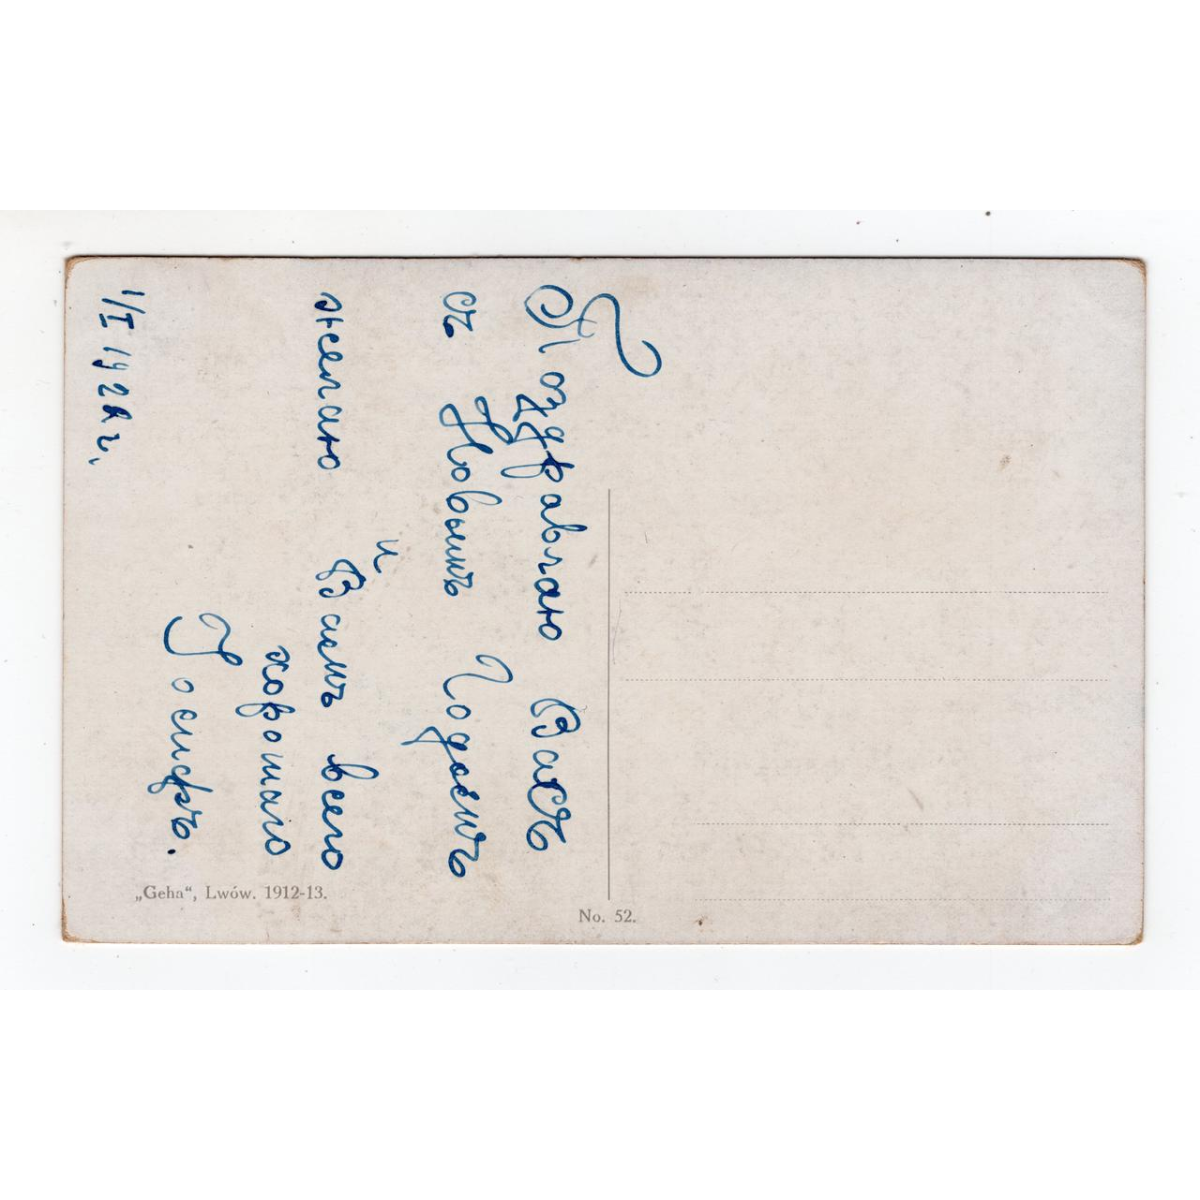 Поздравляю Васъ
съ Новымъ Годомъ
и
желаю Вамъ всего
хорошаго
Іосифъ.
1/I 1922 г.
„Geha“, Lwów. 1912-13.
No. 52.